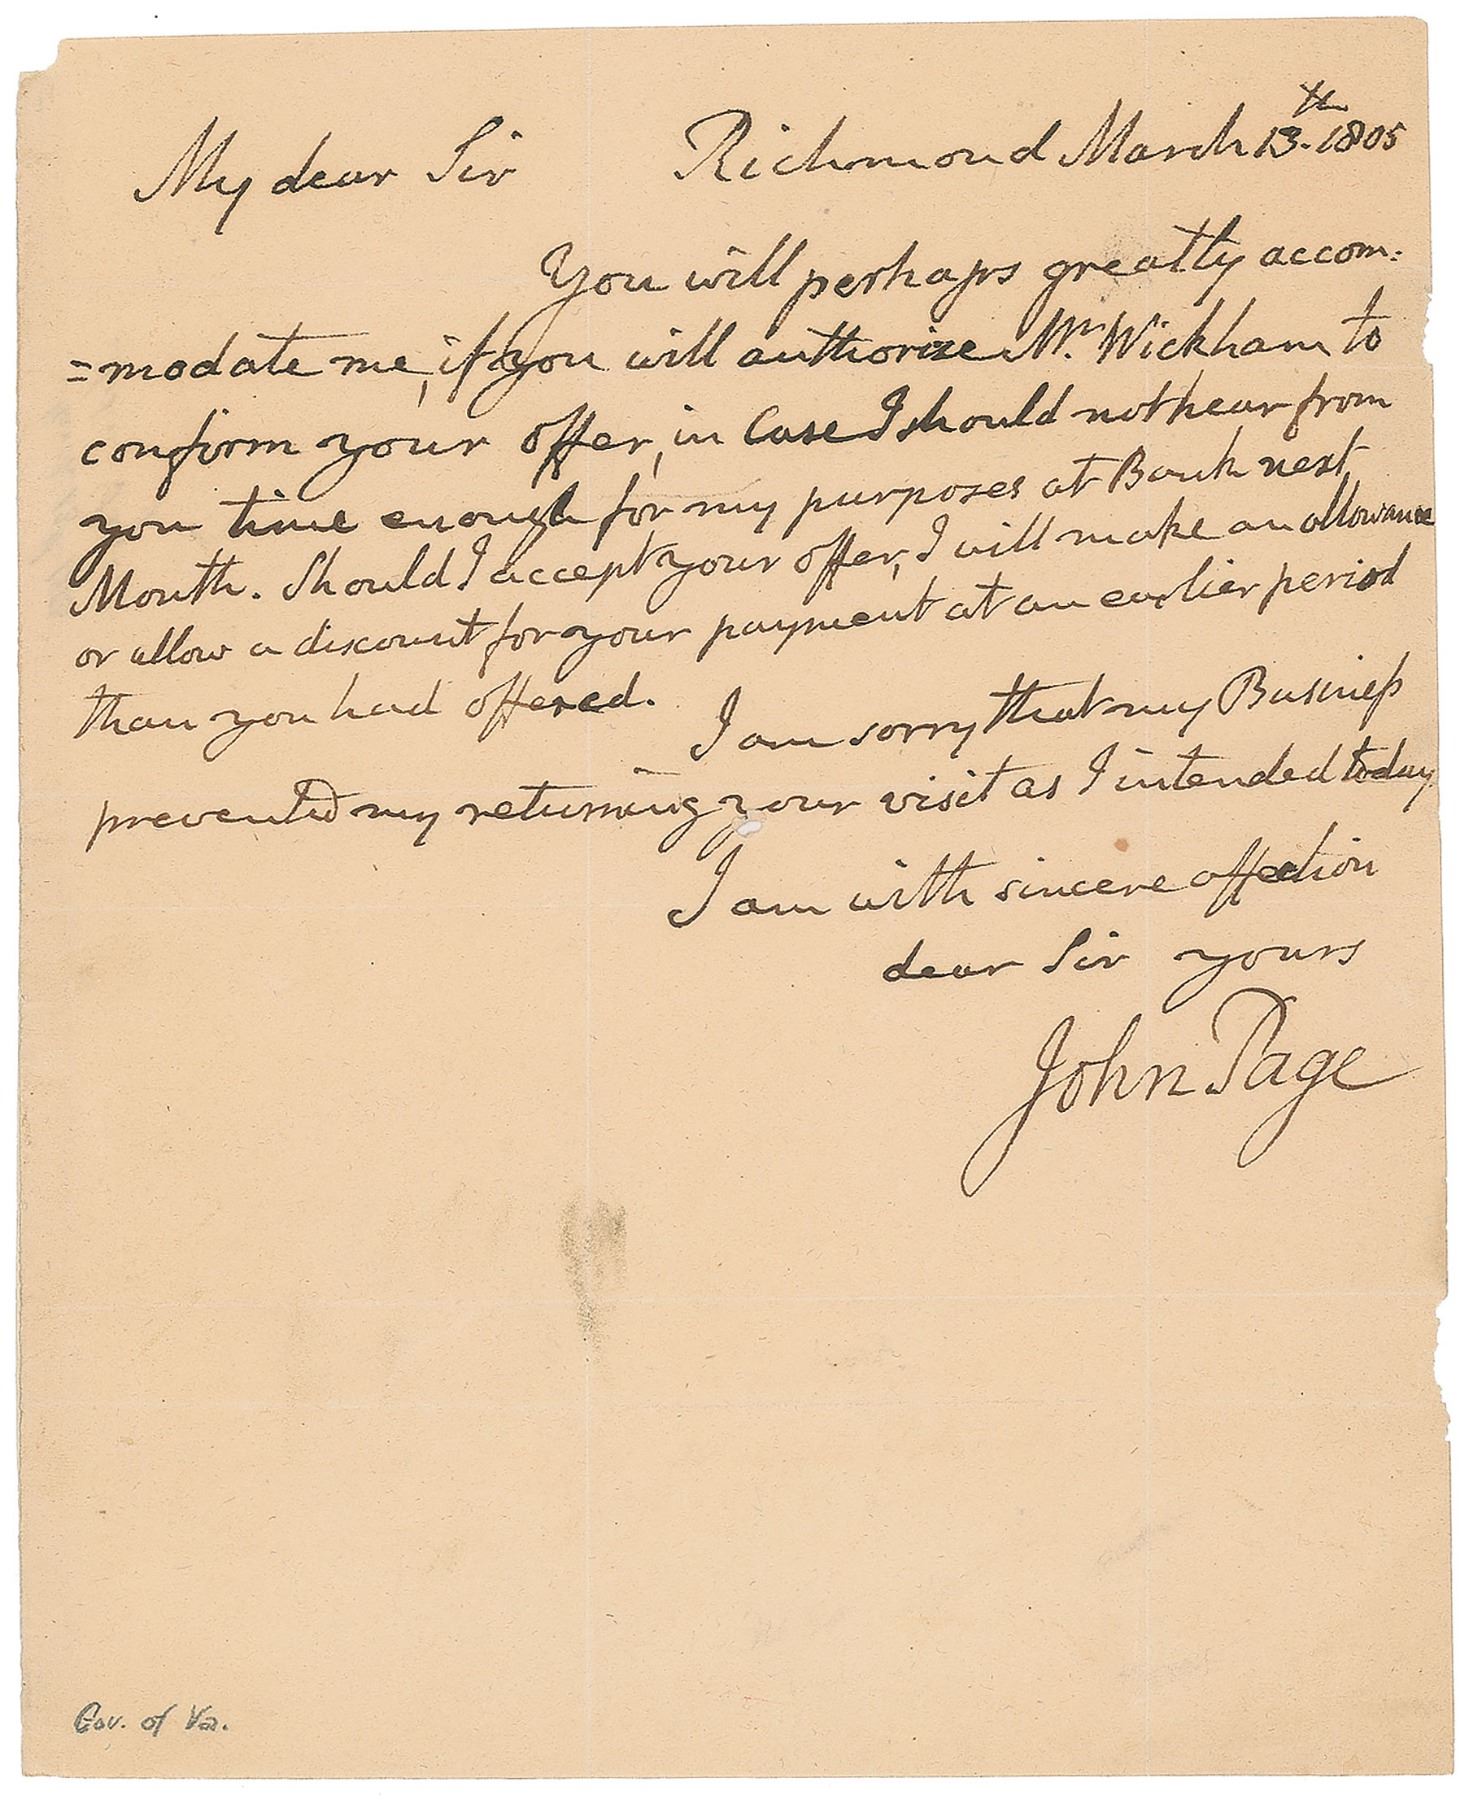 My dear Sir Richmond March 13th. 1805
You will perhaps greatly accom:
=modate me, if you will authorize Mr. Wickham to
confirm your offer, in Case I should not hear from
you time enough for my purposes at Bank next
Month. Should I accept your offer, I will make an allowance
or allow a discount for your payment at an earlier period
than you had offered.
I am sorry that my Business
prevented my returning your visit as I intended today.
I am with sincere affection
dear Sir yours
John Page
Gov. of Va.